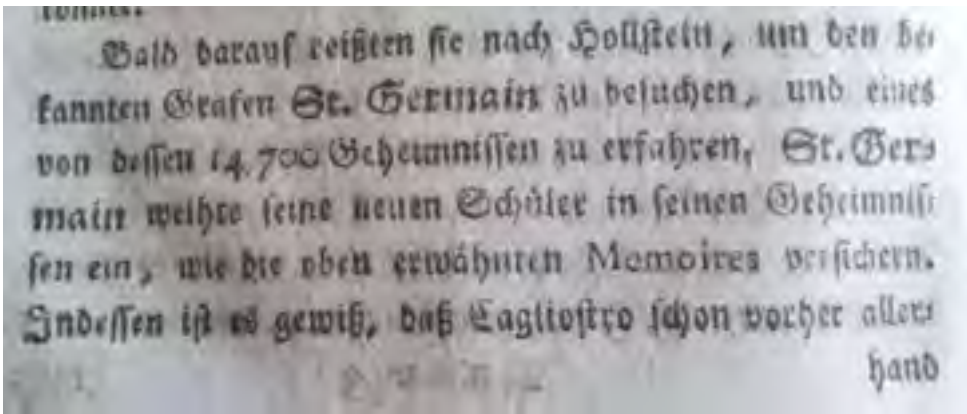 Bald darauf reißten ſie nach Hollſtein, um den be-
kannten Grafen St. Germain zu beſuchen, und eines
von deſſen 14,700 Geheimniſſen zu erfahren. St. Ger-
main weihte ſeine neuen Schüler in ſeinen Geheimniſ-
ſen ein, wie die oben erwähnten Memoires verſichern.
Indeſſen iſt es gewiß, daß Caglioſtro ſchon vorher aller-
hand